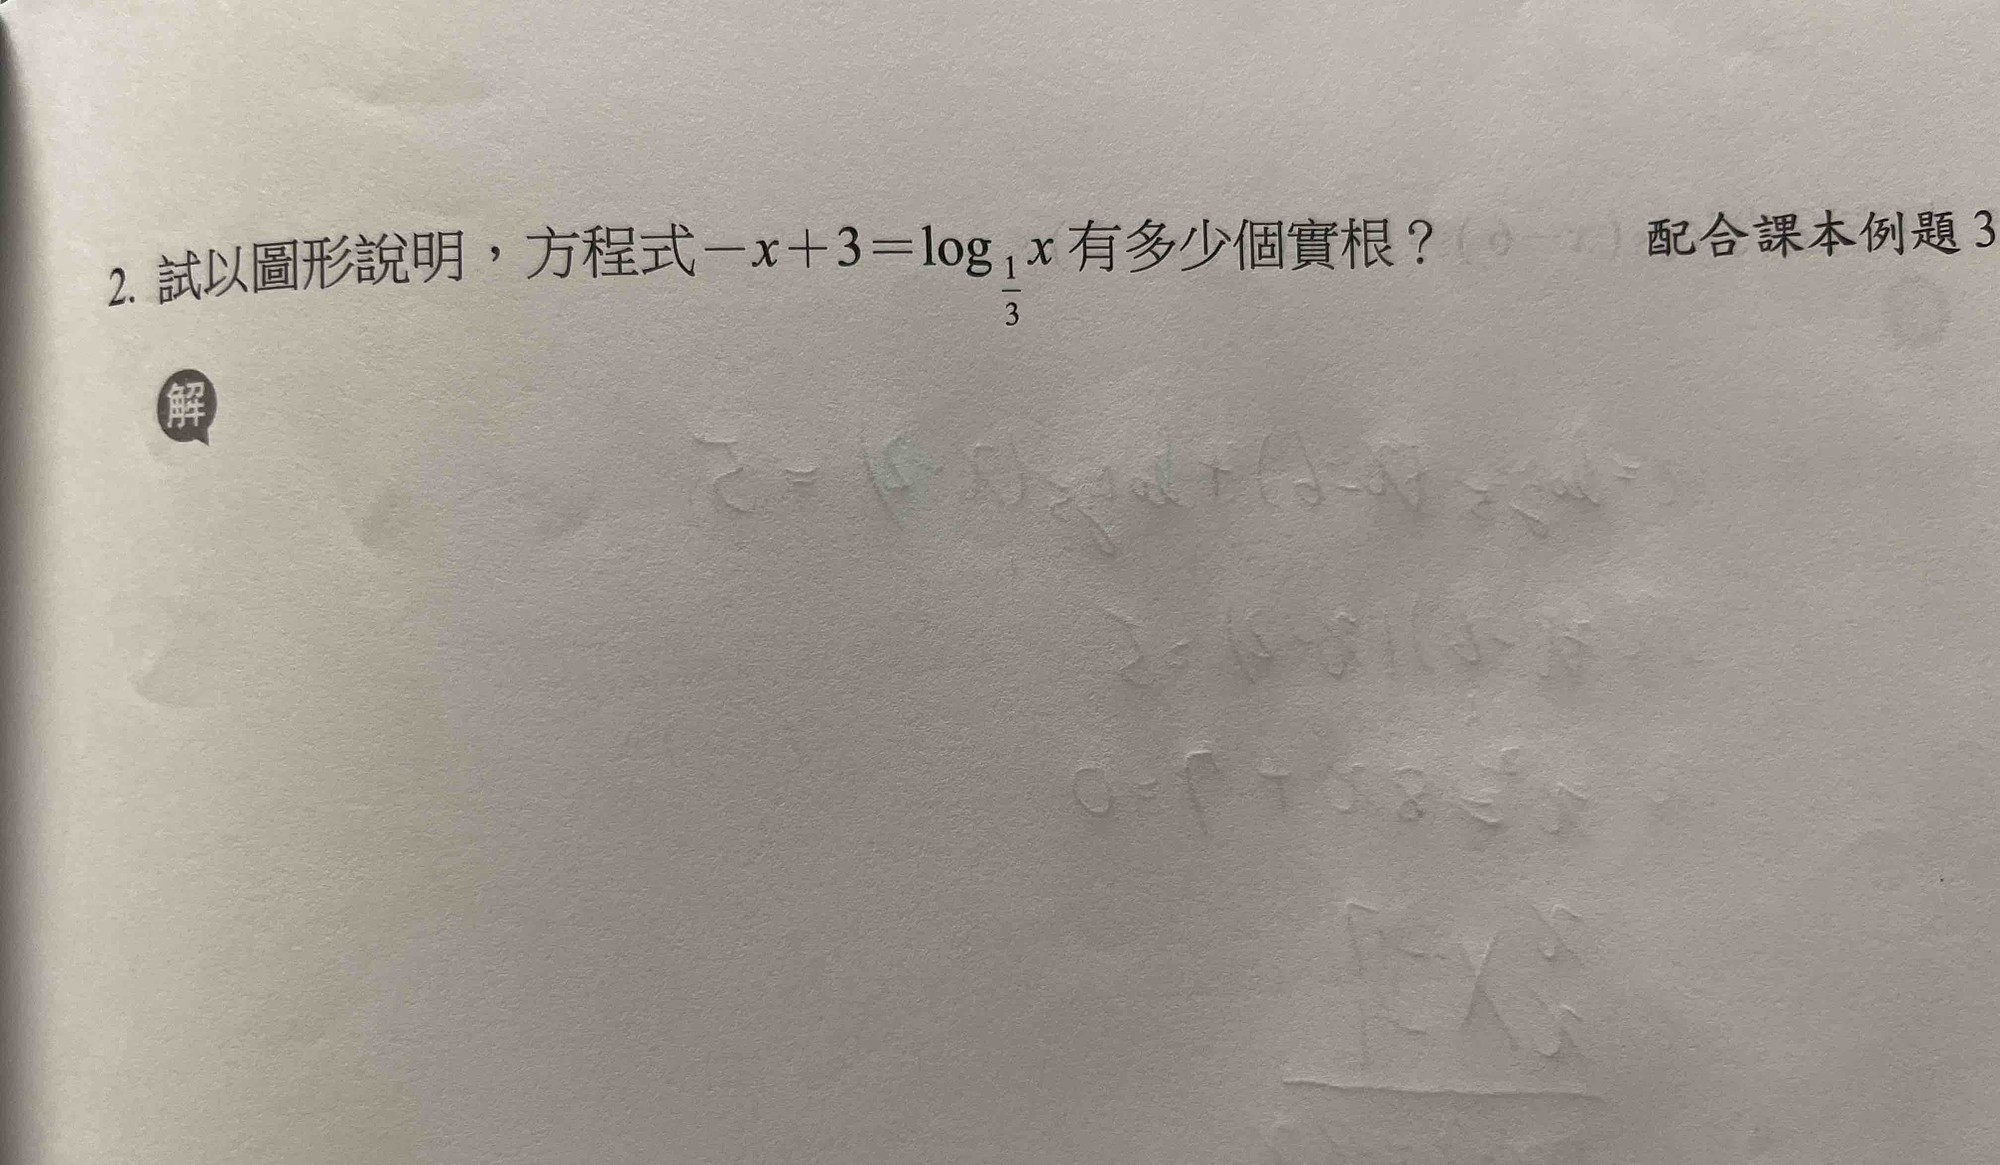 2. 試以圖形說明，方程式－x＋3＝log 1/3 x 有多少個實根？ 配合課本例題 3
解